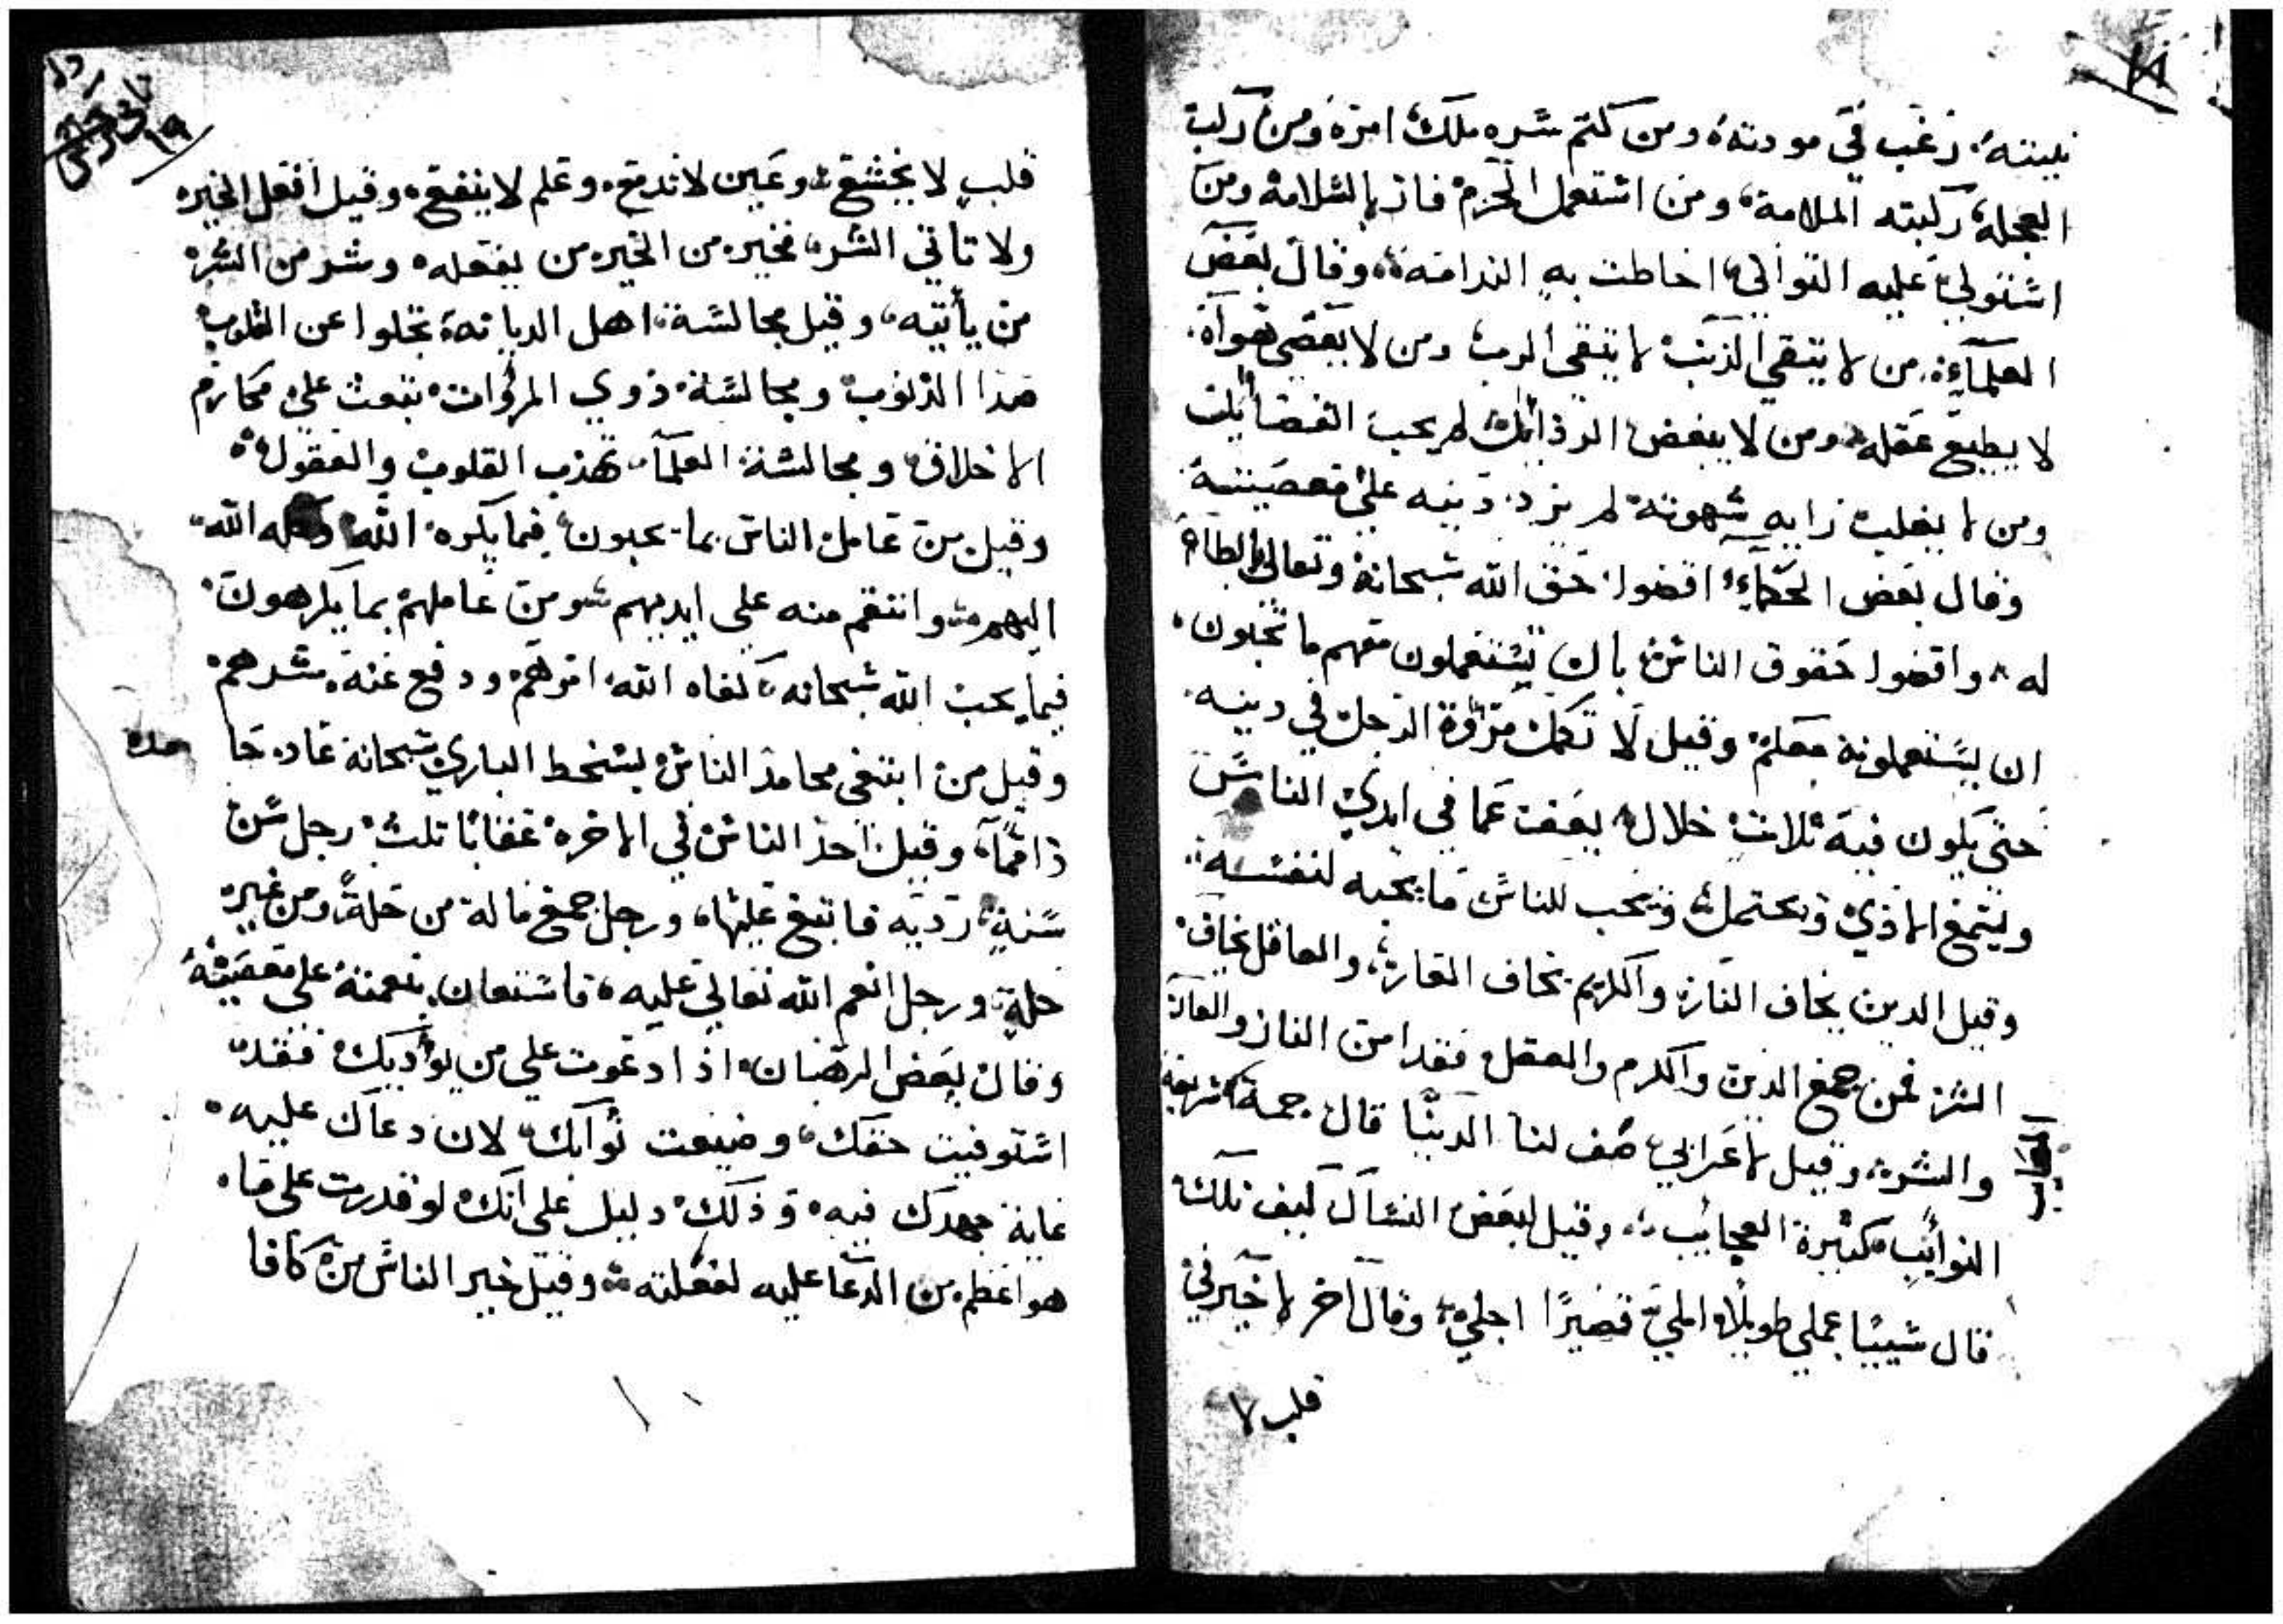 نيبته رغب في مودته ومن كتم سره ملك امره ومن ركب
العجلة ركبته الملامة ومن استعمل الحزم فاز بالسلامة ومن
استولى عليه التواني احاطت به الندامة وقال بعض
العلماء من لا يتقي الذنب لا يتقي الرب ومن لا يعصي هواه
لا يطيع عقله ومن لا يبغض الرذائل لم يحب الفضايل
ومن لا يغلب رايه شهوته لم يزد دينه على معصيته
وقال بعض الحكماء اقضوا حق الله سبحانه وتعالى بالطاعة
له واقضوا حقوق الناس بان تستعملون معهم ما تحبون
ان يستعملونه معكم وقيل لا تكمل مروة الرجل في دينه
حتى يكون فيه ثلاث خلال يعف عما في ايدي الناس
ويسمع الاذي ويحتمل ويحب للناس ما يحبه لنفسه
وقيل الدين يخاف النار والكريم يخاف العار والعاقل يخاف
الشر فمن جمع الدين والكرم والعقل فقد امن النار والعار
والشر وقيل لاعرابي صف لنا الدنيا قال جمة سريعة
النوائب كثيرة العجائب وقيل لبعض النساك كيف تلك
قال شيبا عملي طويلا املي قصيرا اجلي وقال اخر لا خير في
قلب لا
١٩
قلب لا يخشع وعين لا تدمع وعلم لا ينفع وقيل افعل الخير
ولا تاتي الشر فخير من الخير من يفعله وشر من الشر
من يأتيه وقيل مجالسة اهل الديانة تجلوا عن القلوب
صدا الذنوب ومجالسة ذوي المروات تبعث على مكارم
الاخلاق ومجالسة العلماء تهذب القلوب والعقول
وقيل من عامل الناس بما يحبون فيما يكره الله وكله الله
اليهم وانتقم منه على ايديهم ومن عاملهم بما يكرهون
فيما يحب الله سبحانه كفاه الله امرهم ودفع عنه شرهم
وقيل من ابتغى محامد الناس بسخط الباري سبحانه عاد حا مده
ذاما وقيل احد الناس في الاخره عقابا ثلث رجل سن
سنة ردية فاتبع عليها ورجل جمع ماله من حلة ومن غير
حلة ورجل انعم الله تعالى عليه فاستعان بنعمته على معصيته
وقال بعض الرهبان اذا دعوت على من يؤذيك فقد
استوفيت حقك وضيعت ثوابك لان دعاك عليه
غاية جهدك فيه وذلك دليل على انك لو قدرت على ما
هو اعظم من الدعا عليه لفعلته وقيل خير الناس من كافا